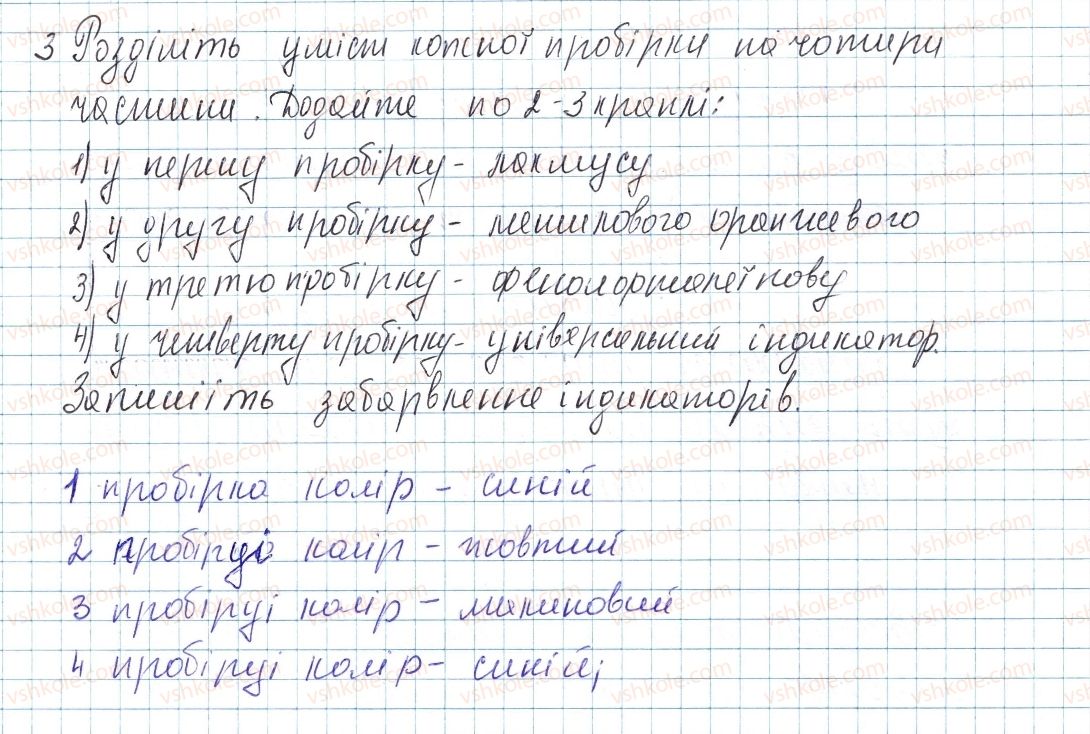 3 Розділіть уміст кожної пробірки на чотири
частини. Додайте по 2-3 краплі:
1) у першу пробірку - лакмусу
2) у другу пробірку - метилового оранжевого
3) у третю пробірку - фенолорталеїнову
4) у четверту пробірку - універсальний індикатор.
Запишіть забарвлення індикаторів.
1 пробірка колір - синій
2 пробірці колір - жовтий
3 пробірці колір - малиновий
4 пробірці колір - синій;
vshkole.com